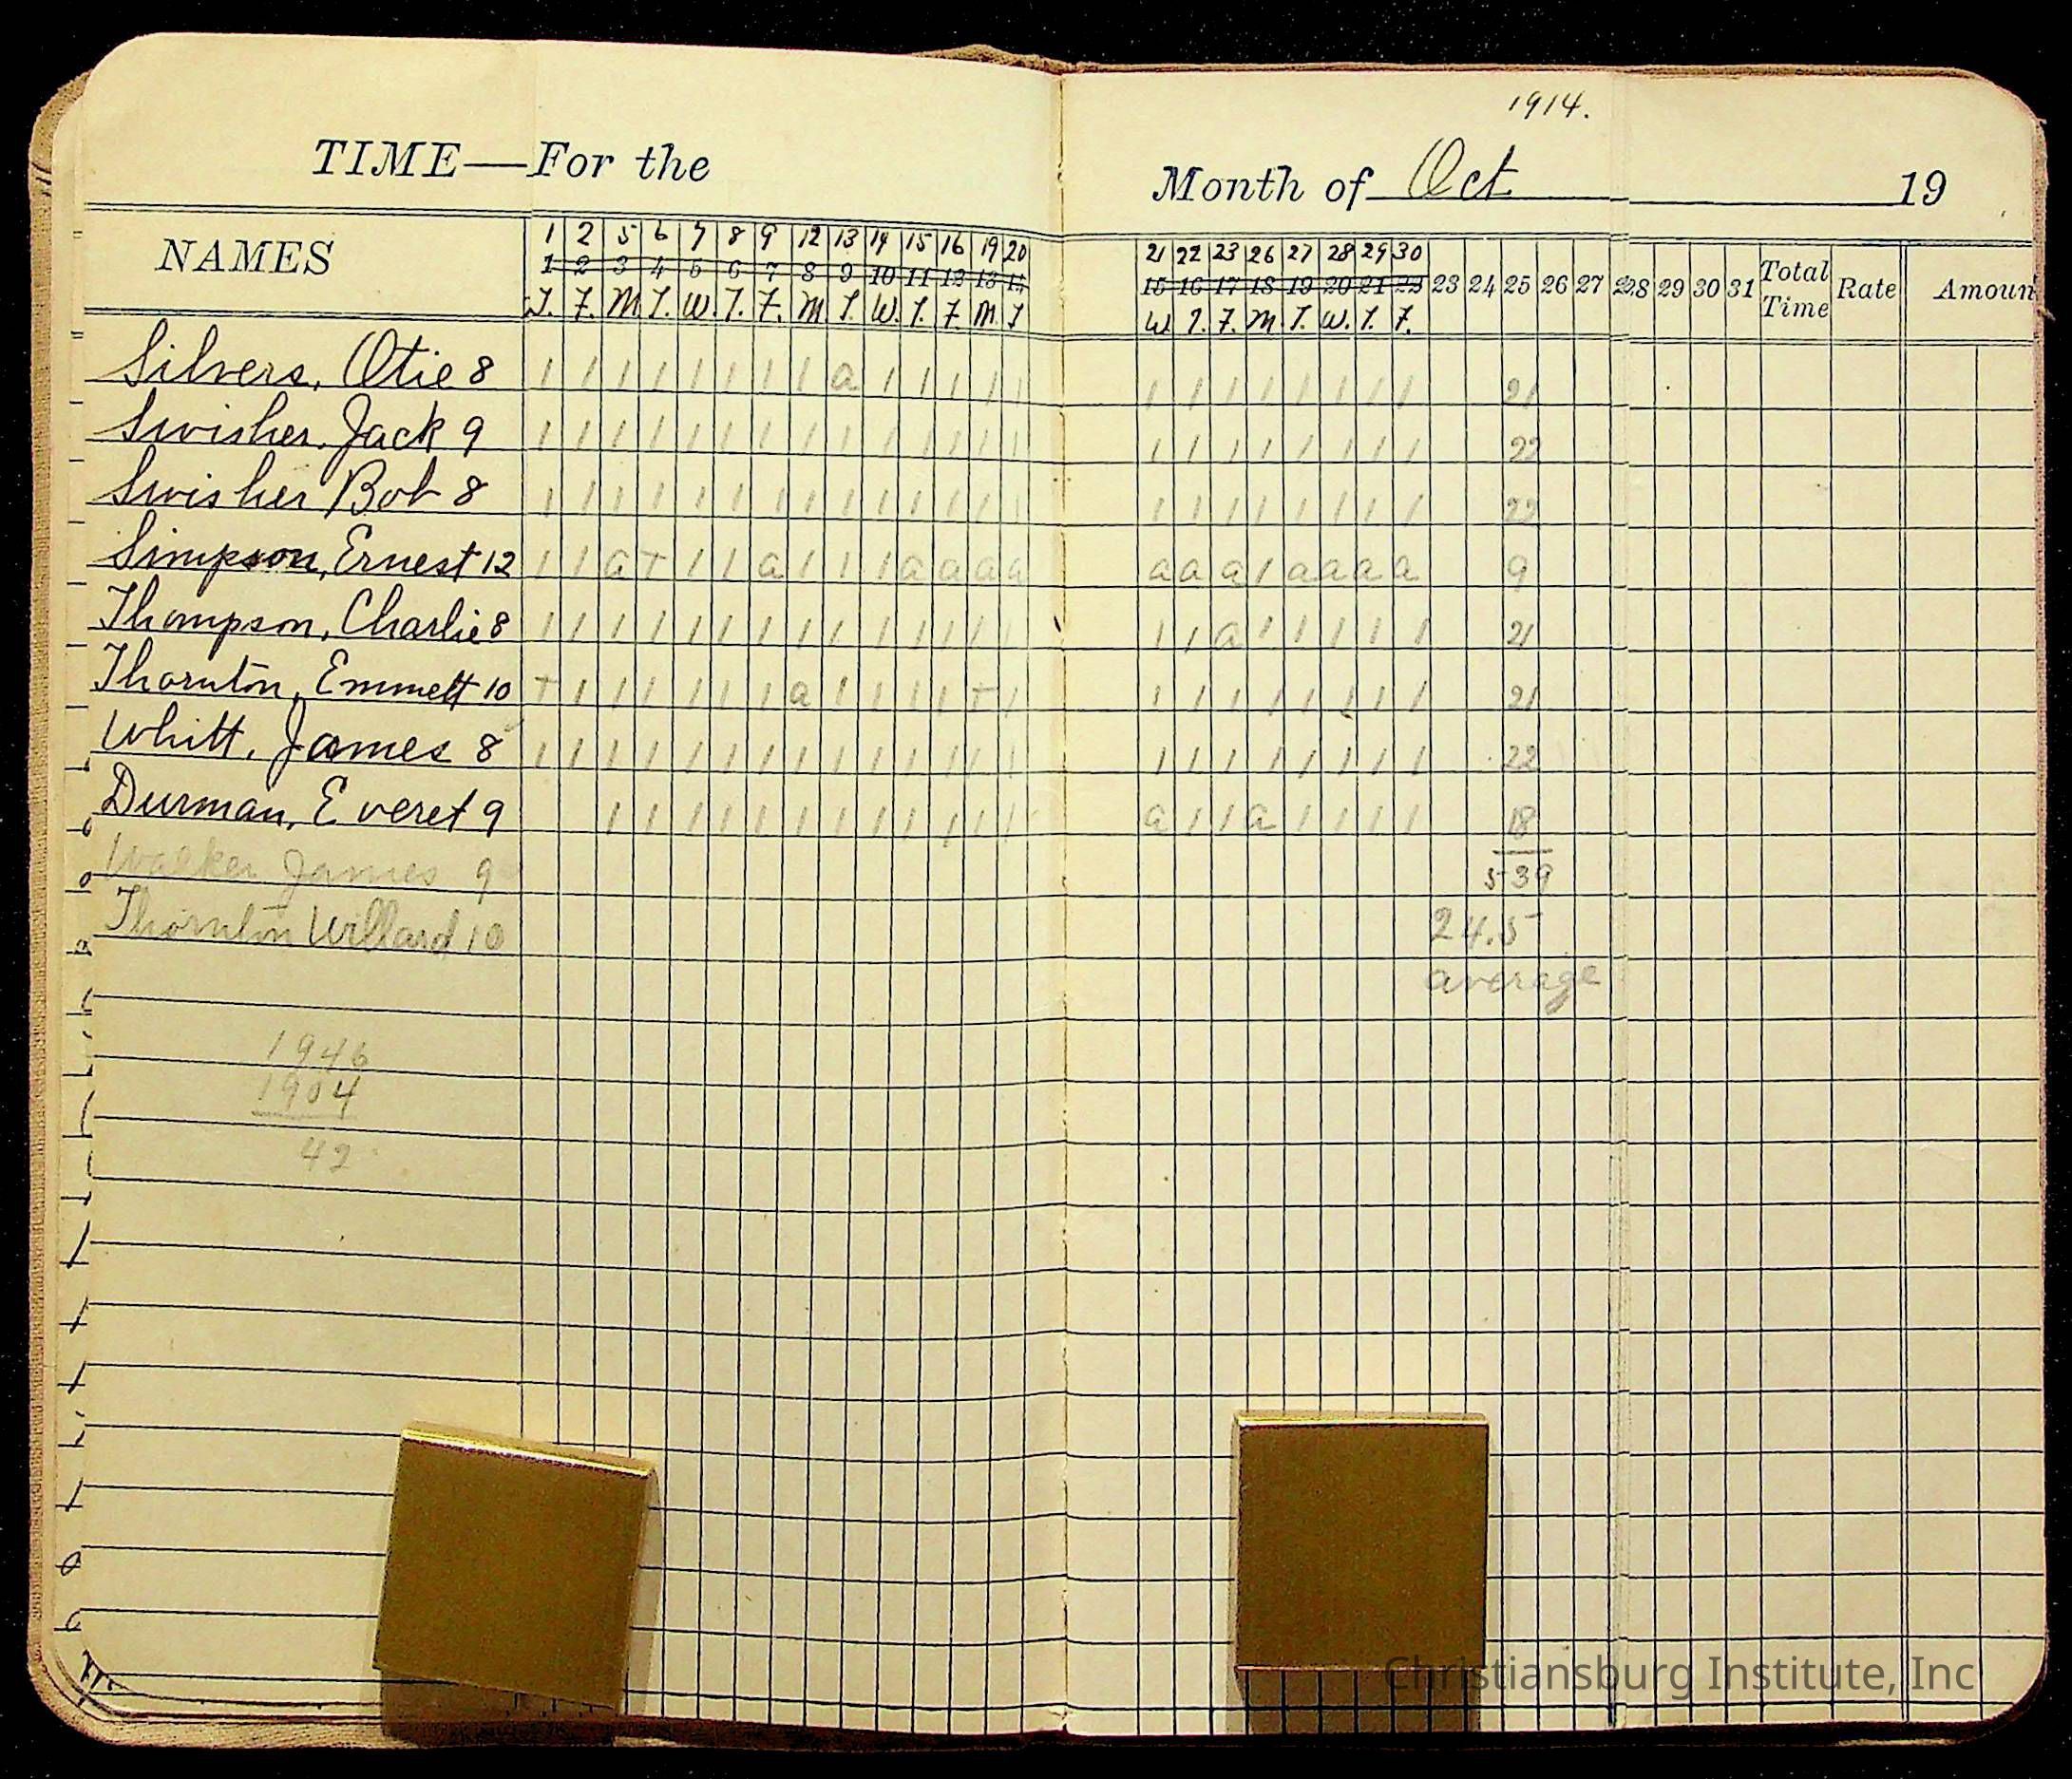 1914.
TIME—For the Month of Oct 19
NAMES 1 2 5 6 7 8 9 12 13 14 15 16 19 20 21 22 23 26 27 28 29 30
1 2 3 4 5 6 7 8 9 10 11 12 13 14 15 16 17 18 19 20 21 22 23 24 25 26 27 28 29 30 31 Total Time Rate Amoun
T. F. M T. W. T. F. M T. W. T. F. M. T W. T. F. M. T. W. T. F.
Silvers, Otie 8 1 1 1 1 1 1 1 1 a 1 1 1 1 1 1 1 1 1 1 1 1 1 21
Swisher, Jack 9 1 1 1 1 1 1 1 1 1 1 1 1 1 1 1 1 1 1 1 1 1 1 22
Swisher Bob 8 1 1 1 1 1 1 1 1 1 1 1 1 1 1 1 1 1 1 1 1 1 1 22
Simpson, Ernest 12 1 1 a T 1 1 a 1 1 1 a a a a a a a 1 a a a a 9
Thompson, Charlie 8 1 1 1 1 1 1 1 1 1 1 1 1 1 1 1 1 a 1 1 1 1 1 21
Thornton, Emmett 10 T 1 1 1 1 1 1 a 1 1 1 1 T 1 1 1 1 1 1 1 1 1 21
Whitt, James 8 1 1 1 1 1 1 1 1 1 1 1 1 1 1 1 1 1 1 1 1 1 1 22
Durman, Everet 9 1 1 1 1 1 1 1 1 1 1 1 1 a 1 1 a 1 1 1 1 18
Walker James 9 539
Thornton Willard 10 24.5
average
1946
1904
42
Christiansburg Institute, Inc